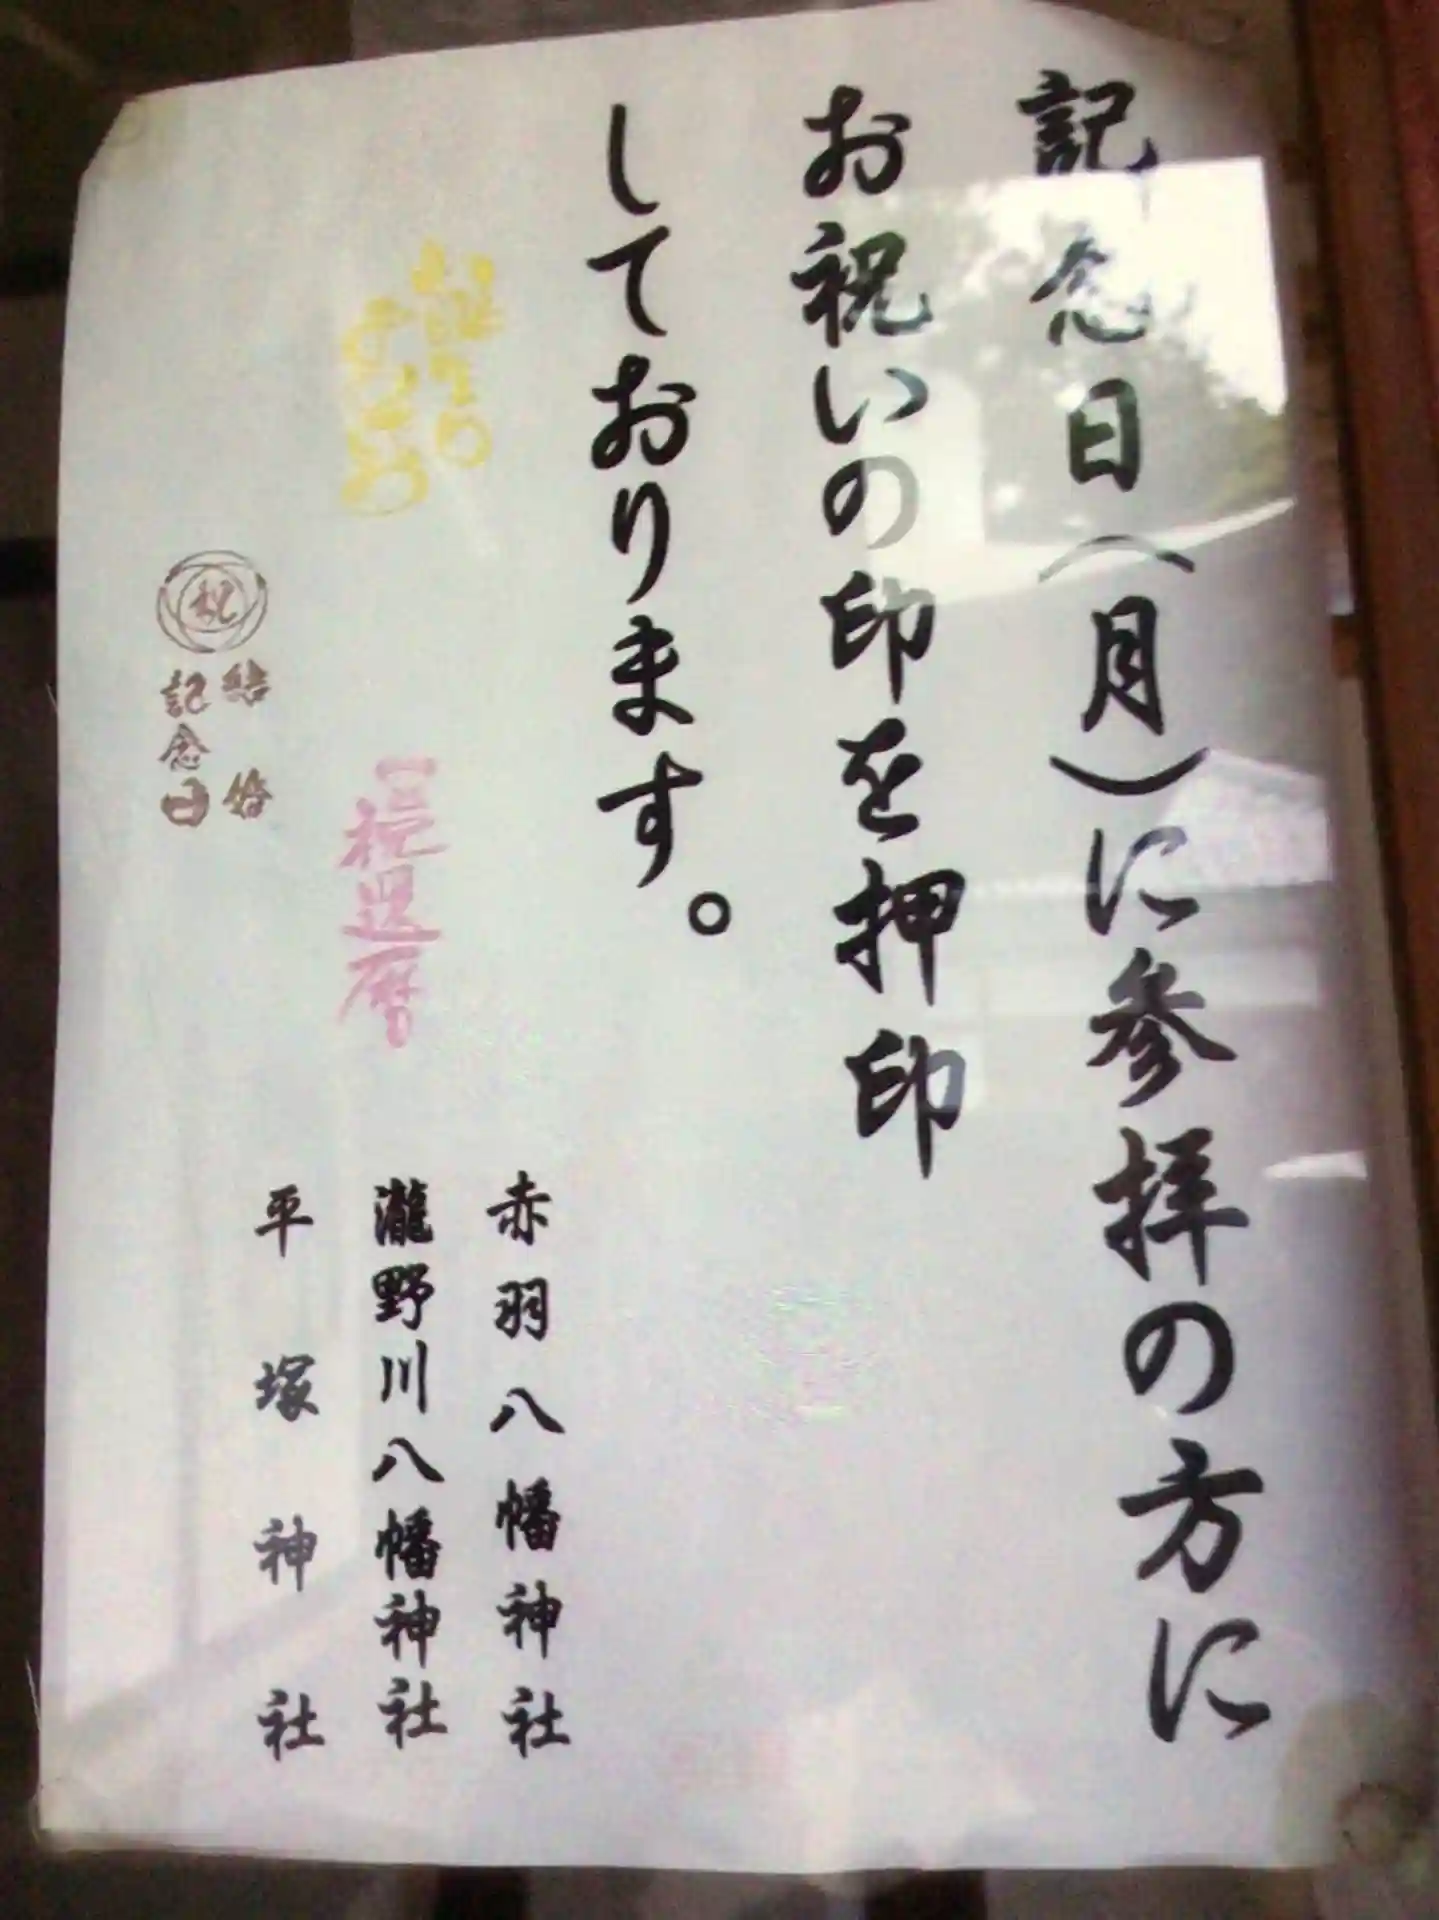 記念日（月）に参拝の方に
お祝いの印を押印
しております。
お誕生日
おめでとう
祝還暦
祝
結婚
記念日
赤羽八幡神社
瀧野川八幡神社
平塚神社